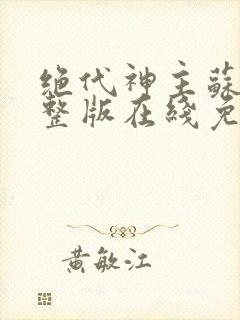 絕代神主蘇
整版在綫免
黃敏江